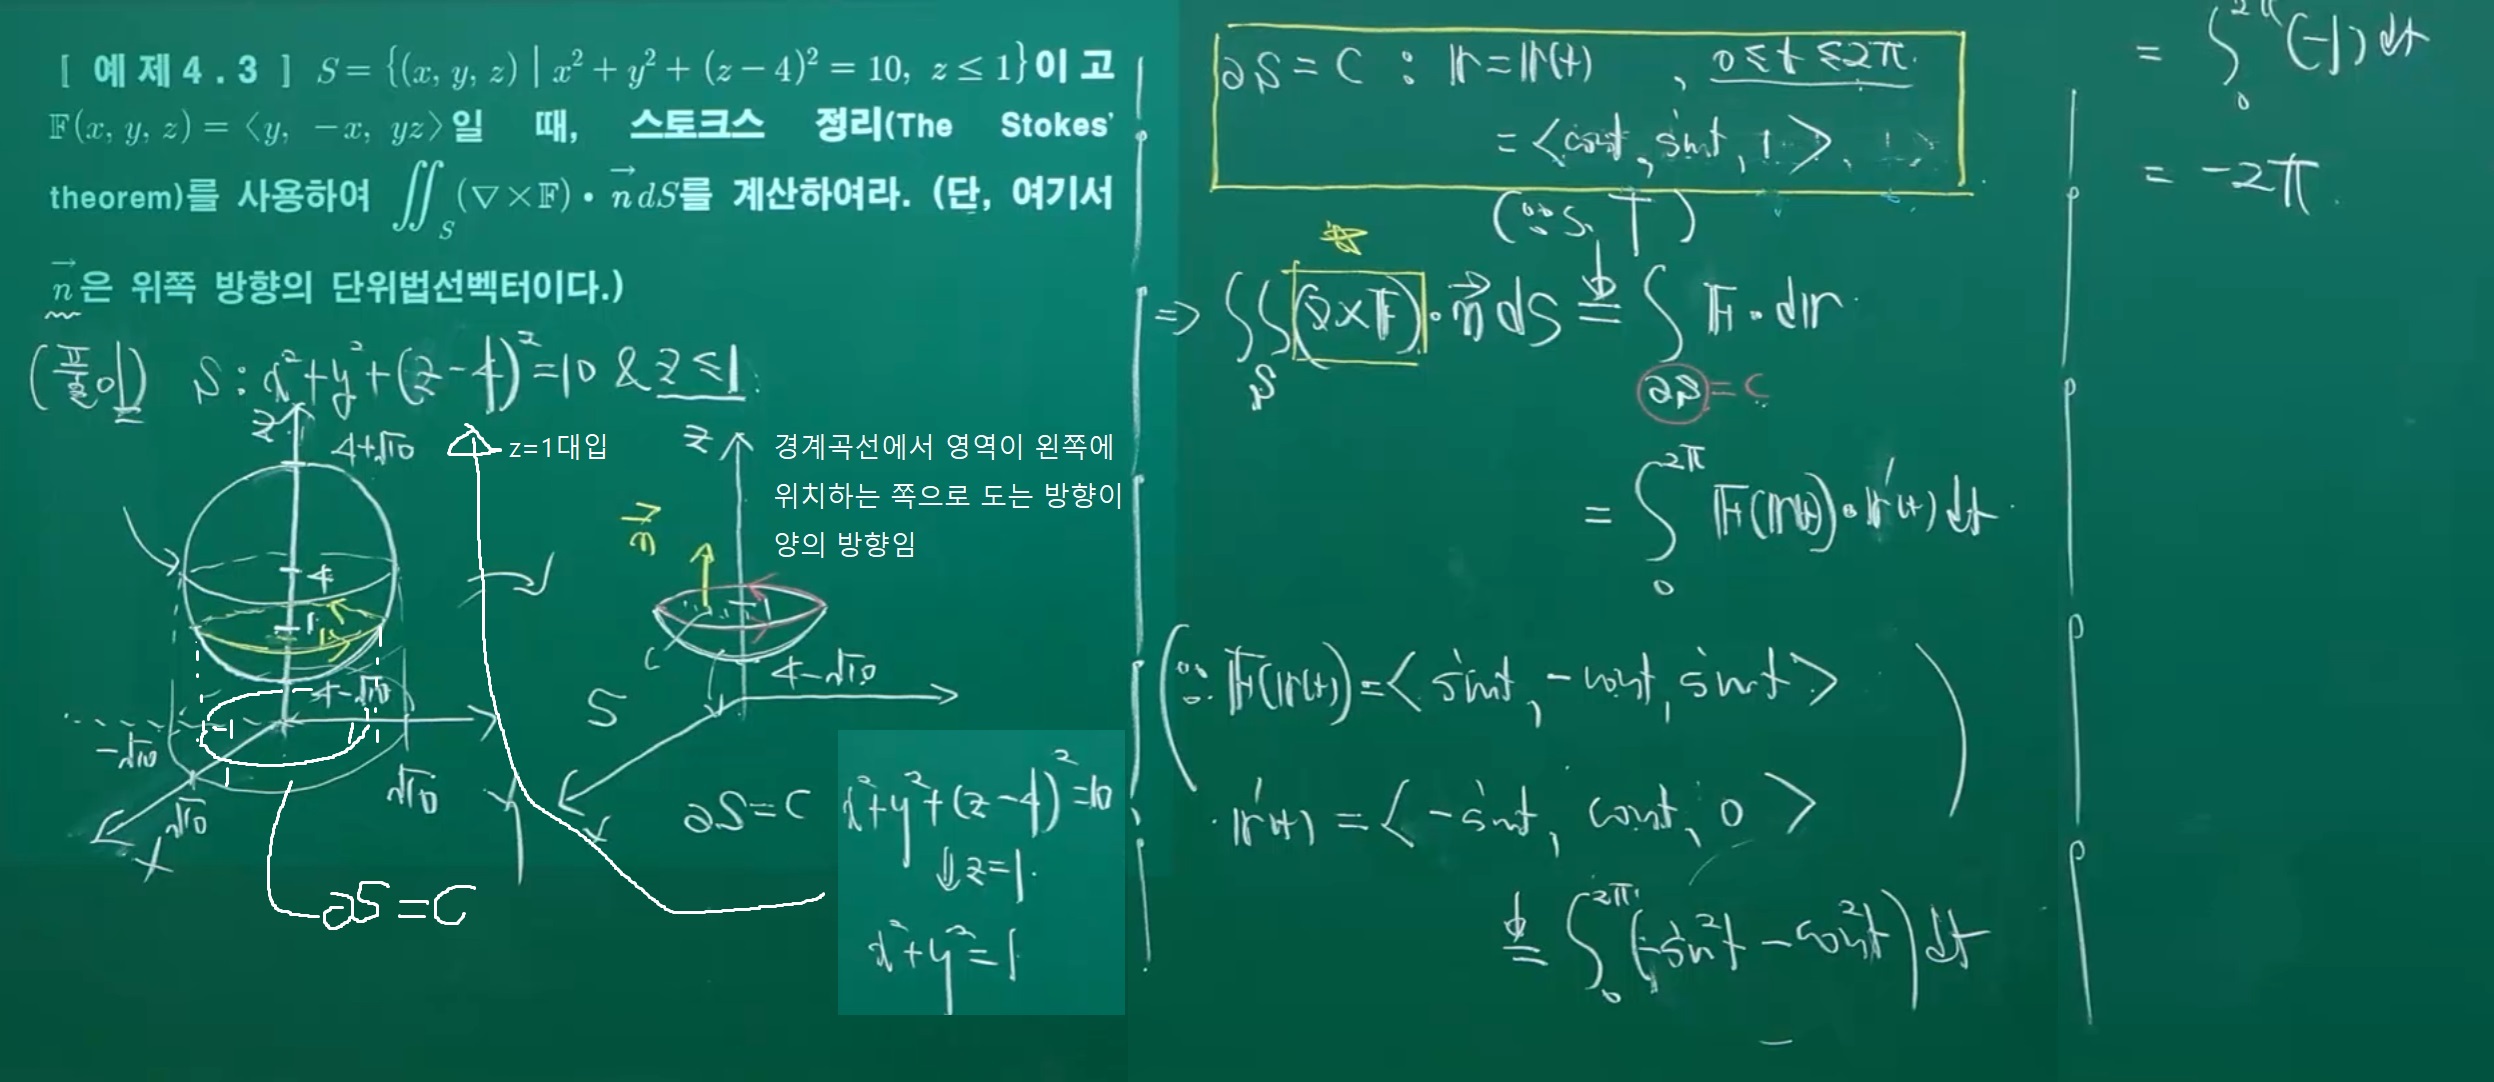 [ 예제4.3 ] S = {(x, y, z) | x² + y² + (z − 4)² = 10, z ≤ 1}이고
𝔽(x, y, z) = ⟨y, −x, yz⟩일 때, 스토크스 정리(The Stokes'
theorem)를 사용하여 ∬_S (∇×𝔽)• n⃗ dS를 계산하여라. (단, 여기서
n⃗은 위쪽 방향의 단위법선벡터이다.)
(풀이) S : x²+y²+(z−4)²=10 & z≤1.
z
4+√10
4
1
4−√10
−√10
−1
1
√10
√10
x
y
∂S=C
z=1대입
z
경계곡선에서 영역이 왼쪽에
위치하는 쪽으로 도는 방향이
양의 방향임
n⃗
1
C
4−√10
S
x
∂S=C
x²+y²+(z−4)²=10
↓z=1.
x²+y²=1
∂S = C : 𝕣=𝕣(t) , 0≤t≤2π.
= <cost, sint, 1>
(∵ S.T)
⇒ ∬_S (∇×𝔽)•n⃗ dS = ∫_{∂S=C} 𝔽•d𝕣
= ∫₀^{2π} 𝔽(𝕣(t))•𝕣'(t)dt
(∵ 𝔽(𝕣(t))=<sint, −cost, sint>
𝕣'(t) = <−sint, cost, 0>)
= ∫₀^{2π}(−sin²t −cos²t)dt
= ∫₀^{2π}(−1)dt
= −2π